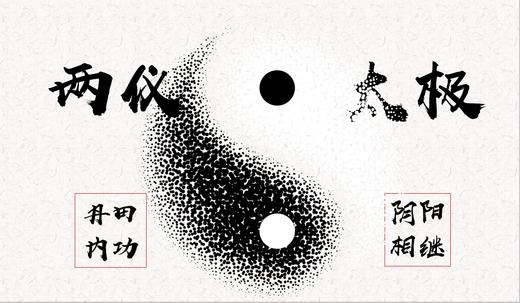 两仪
太极
丹田
内功
阴阳
相继